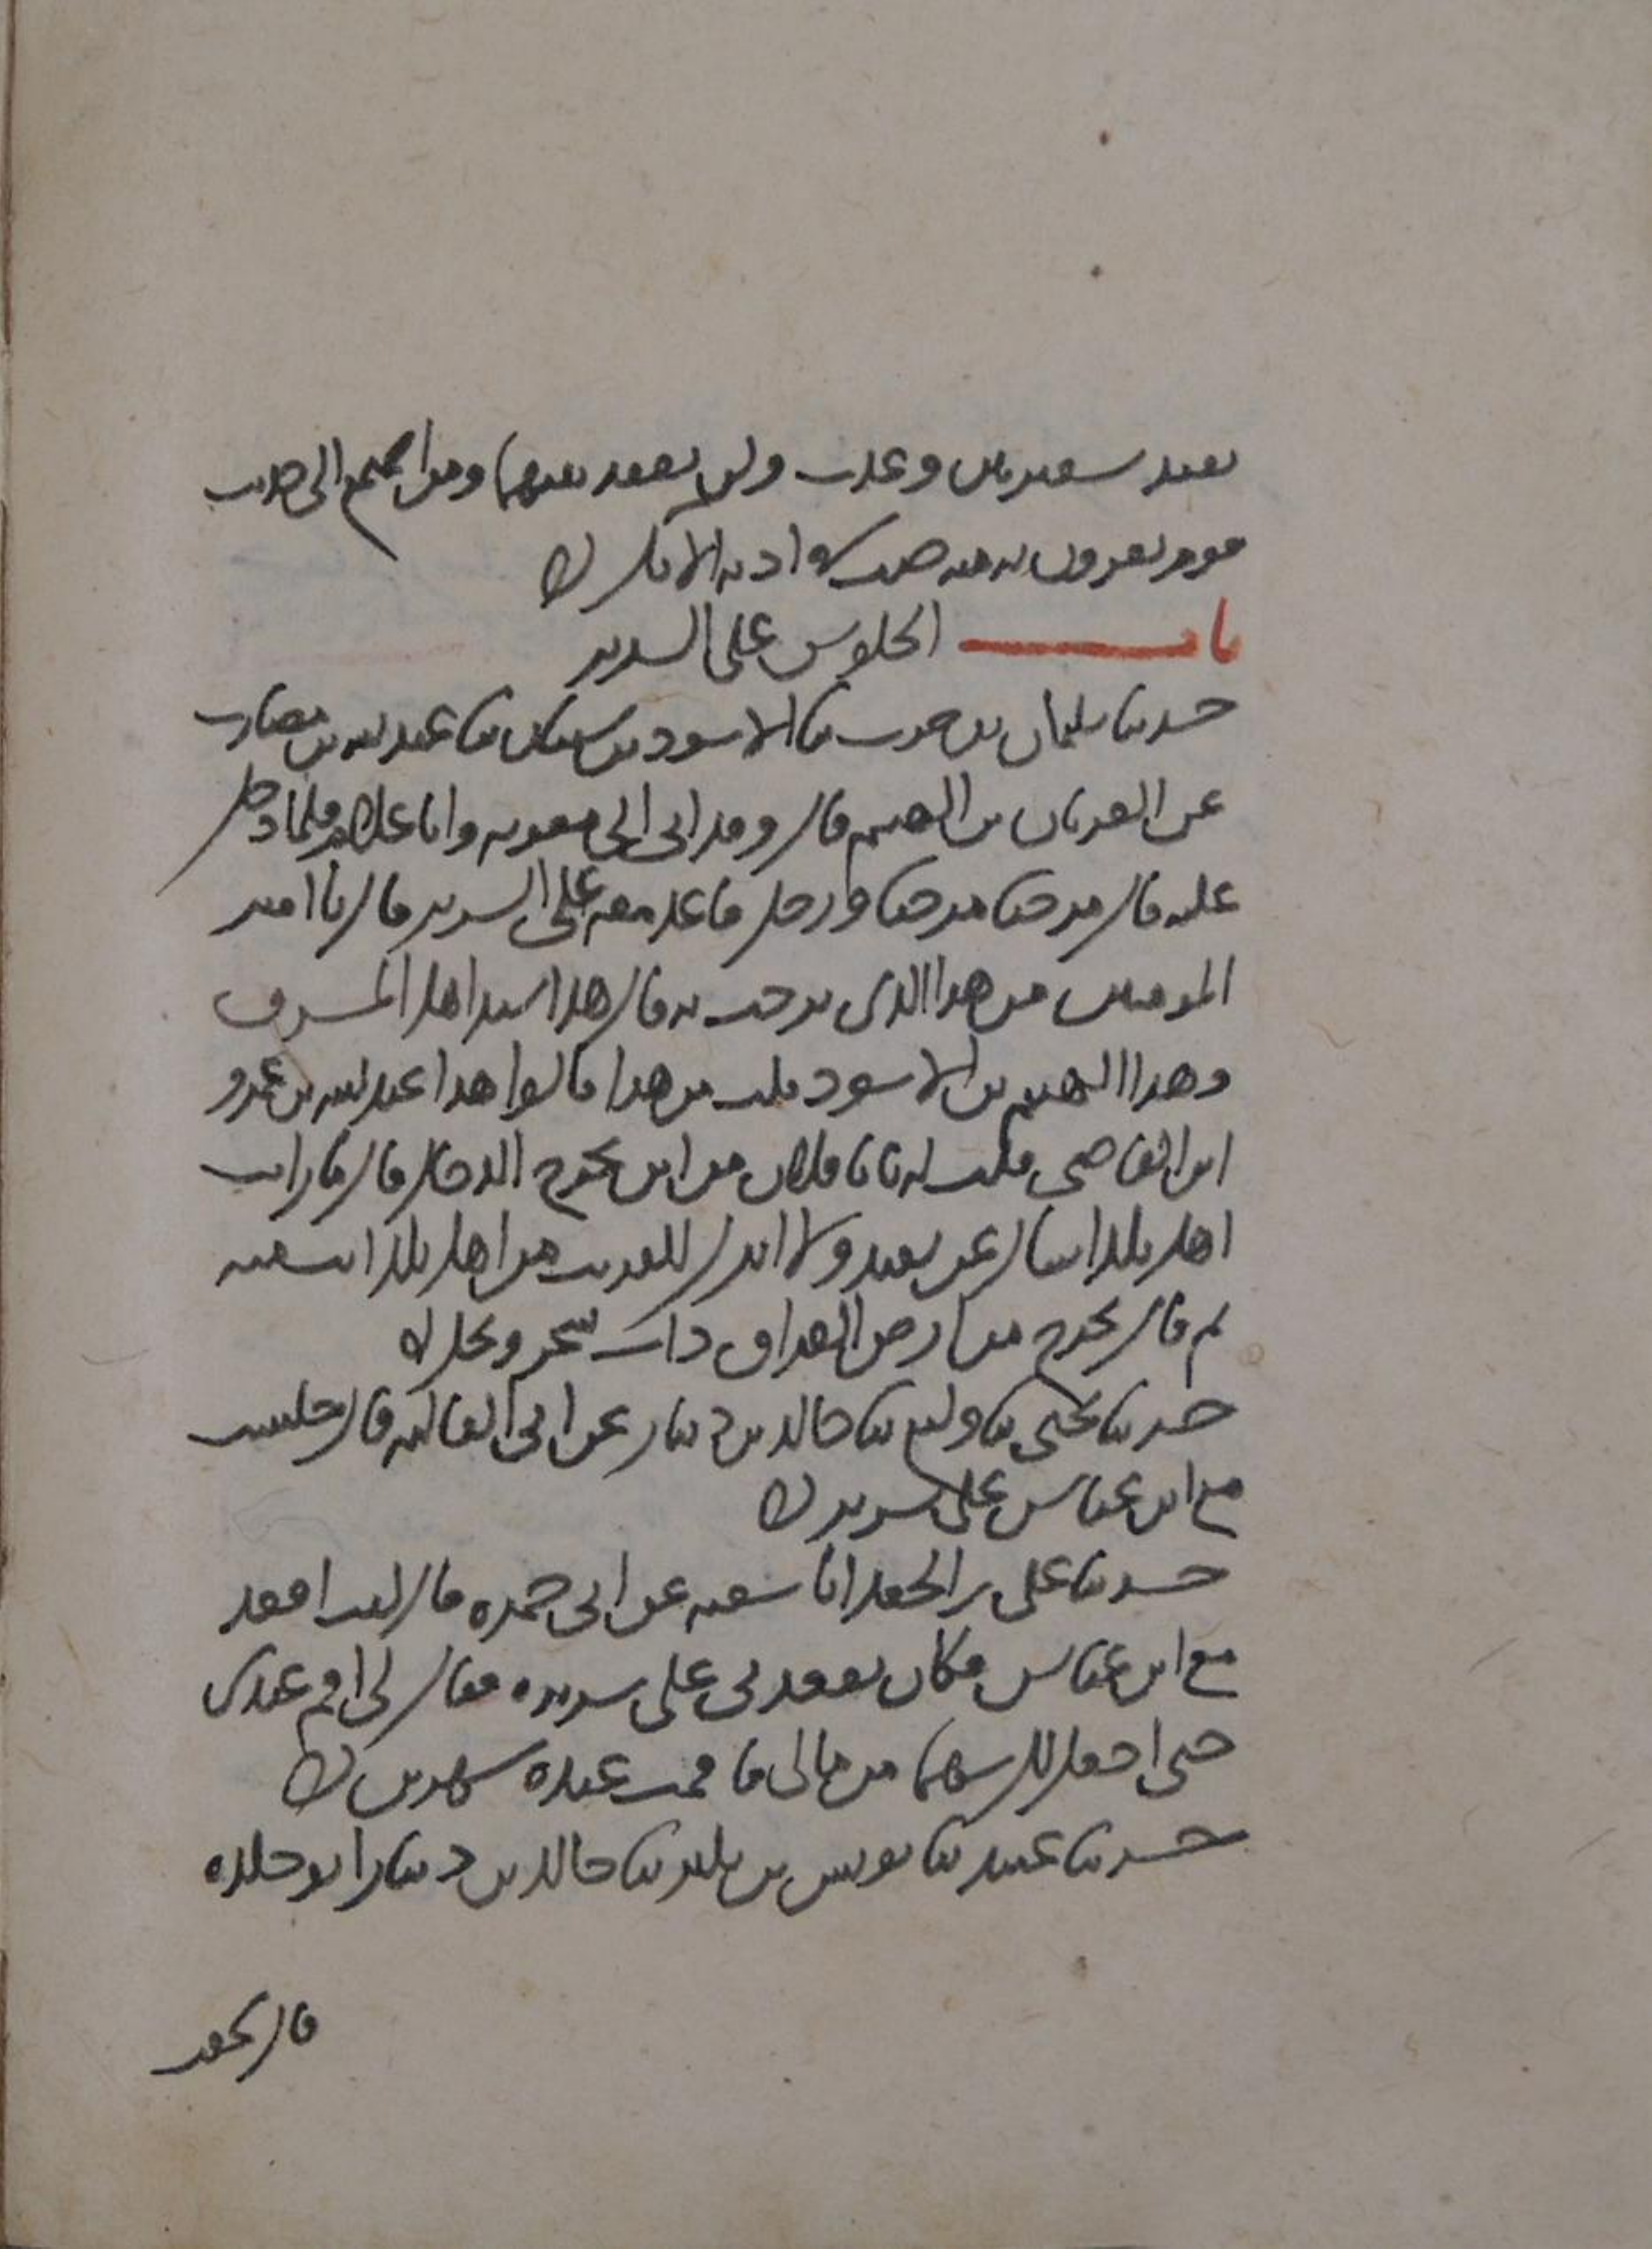 بعقد شعيرتين وعذب ولن يعقد بينهما ومن استمع الى حديث
قوم يفرون به منه صب في اذنه الآنك
باب الجلوس على السرير
حدثنا سليمان بن حرب ثنا الاسود بن شيبان ثنا عبد الله بن مضارب
عن العريان بن الهيثم قال وفد ابي الى معوية وانا غلام فلما دخل
عليه قال مرحبا مرحبا ورجل قاعد معه على السرير قال يا امير
المومنين من هذا الذي ترحب به قال هذا سيد اهل المشرق
وهذا الهيثم بن الاسود قلت من هذا قالوا هذا عبد الله بن عمرو
ابن العاصي فقلت له يا با فلان من اين يخرج الدجال قال ما رايت
اهل بلد اسال عن بعيد ولا اترك للقريب من اهل بلد انت منه
ثم قال يخرج من ارض العراق ذات شجر ونخل
حدثنا يحيى ثنا وكيع ثنا خالد بن دينار عن ابي العالية قال جلست
مع ابن عباس على سرير
حدثنا علي بن الجعد انا شعبة عن ابي جمرة قال كنت اقعد
مع ابن عباس فكان يقعدني على سريره فقال لي اقم عندي
حتى اجعل لك سهما من مالي فاقمت عنده شهرين
حدثنا عبيد ثنا يونس بن بكير ثنا خالد بن دينار ابو خلدة
قال سمعت